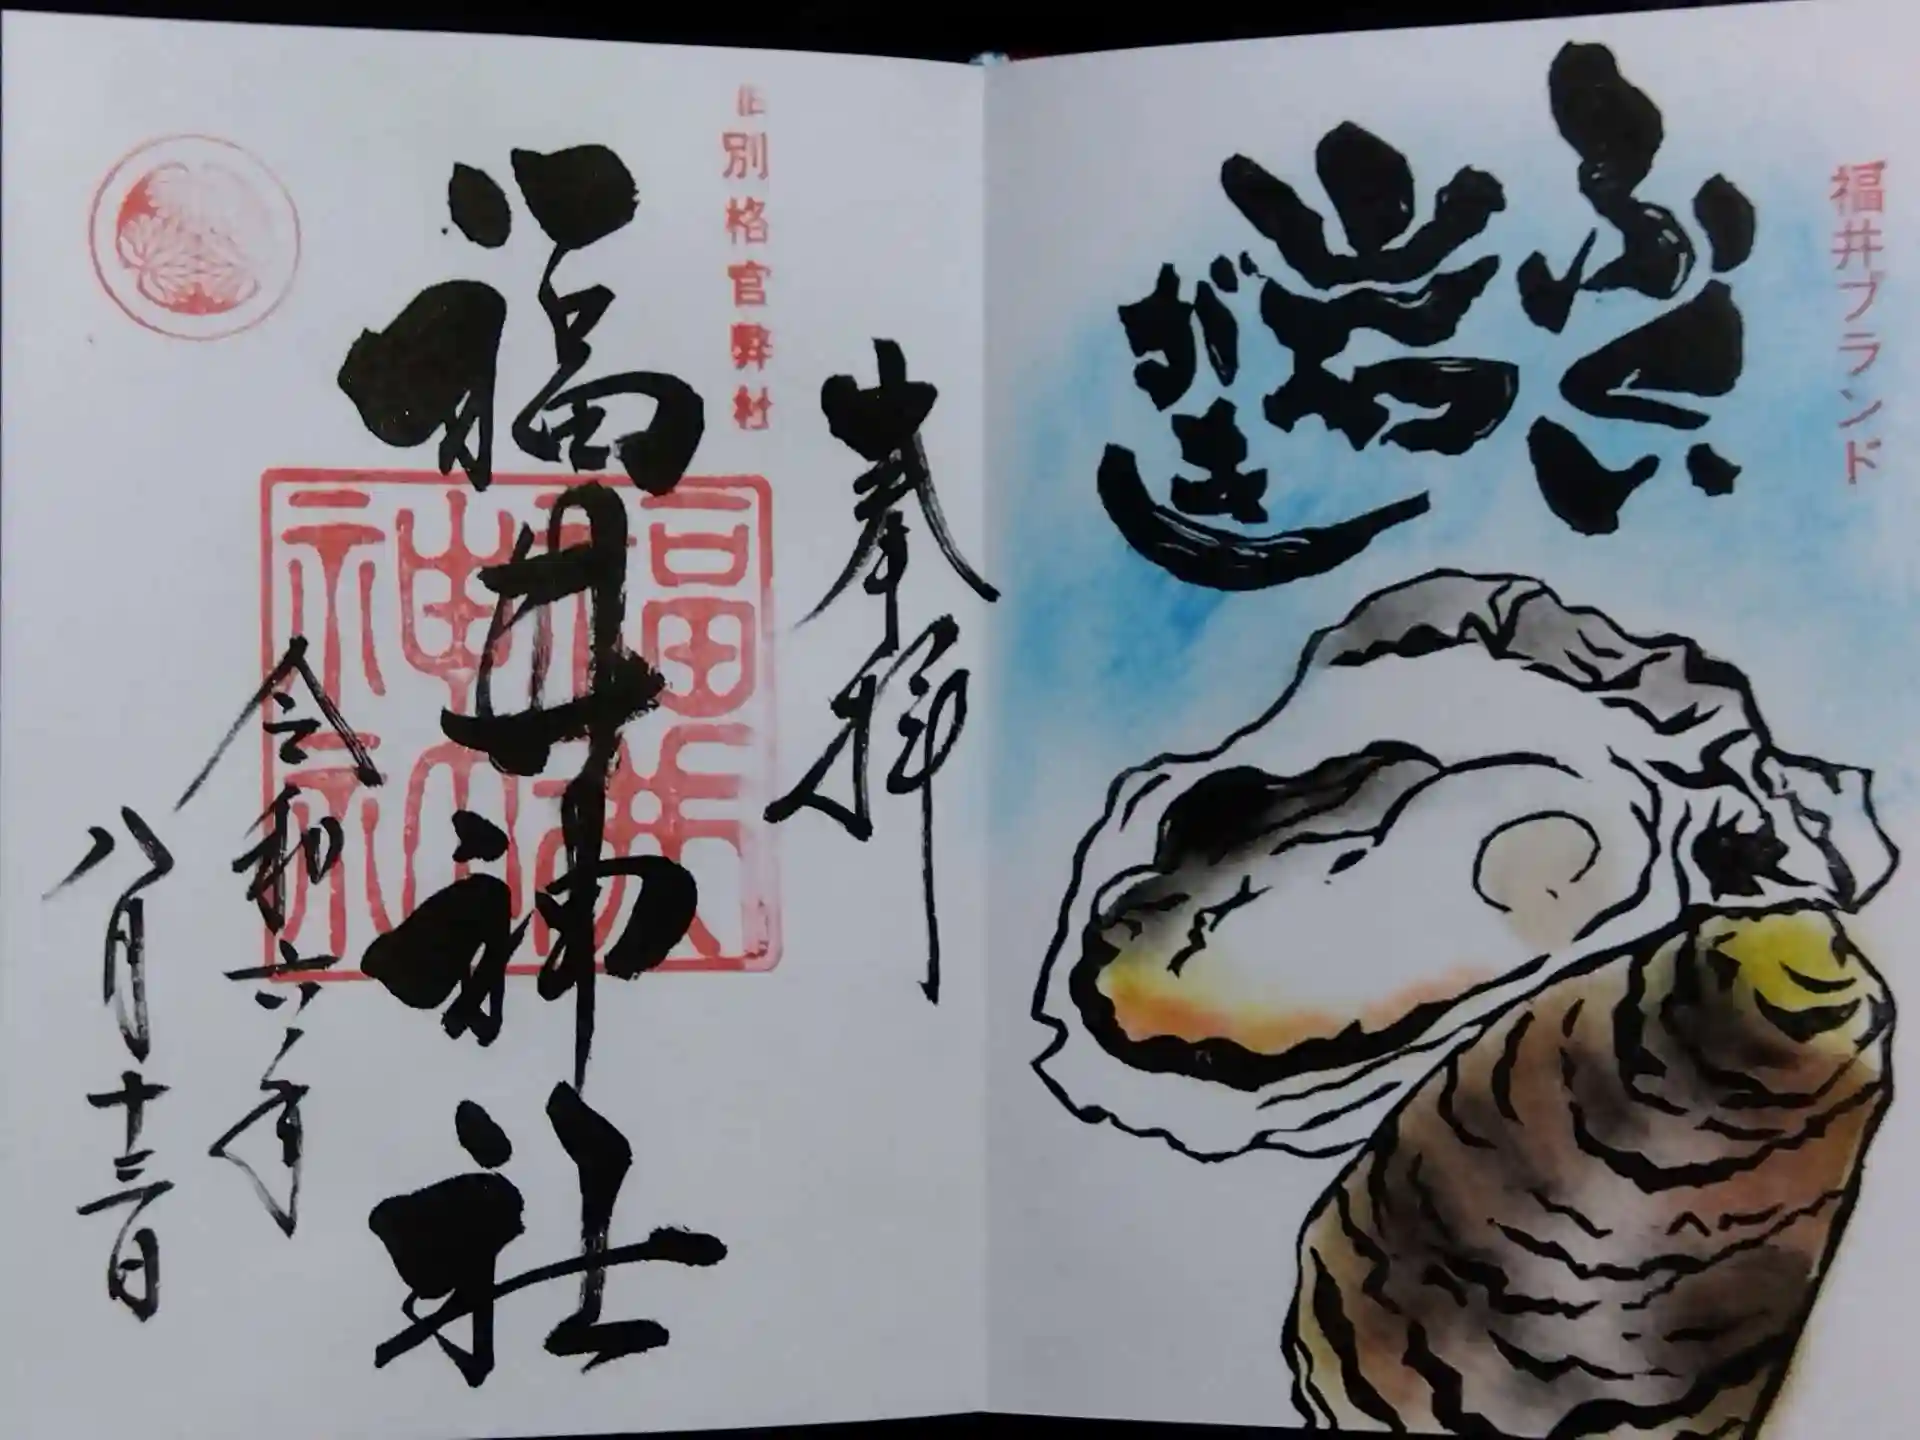 福井ブランド
ふくい
岩がき
奉拝
旧別格官弊社
福井神社
令和六年
八月十三日